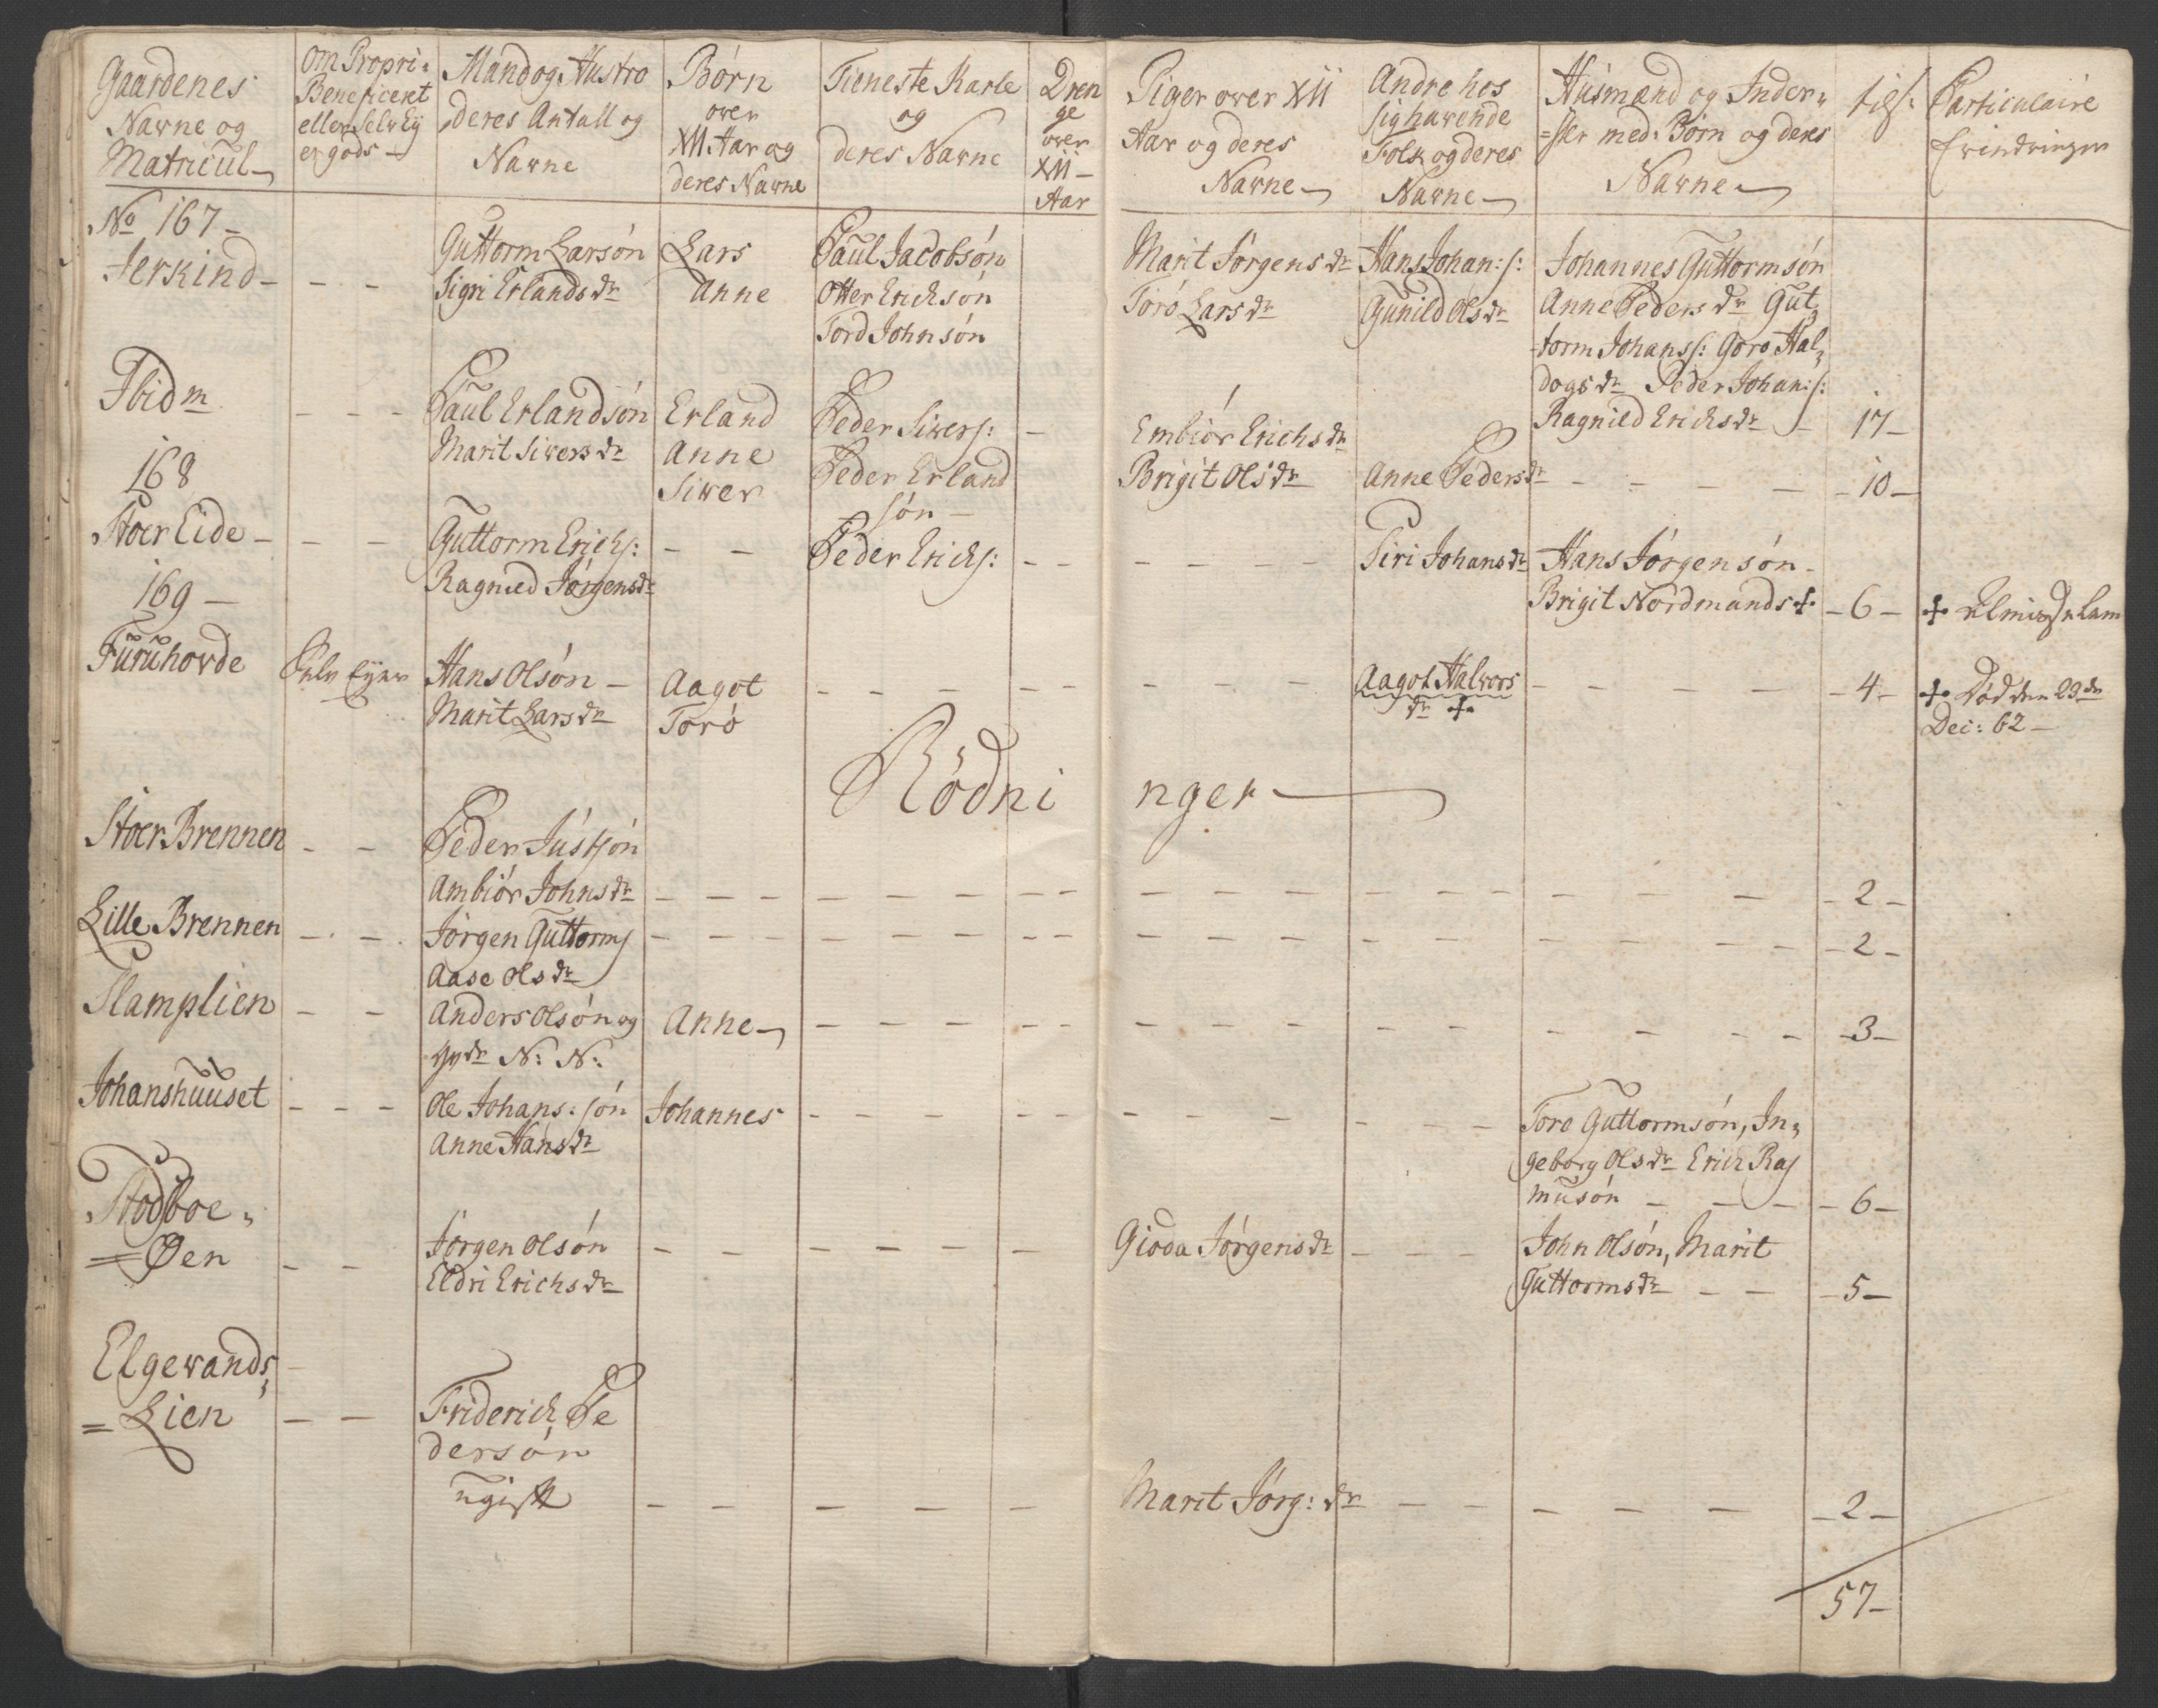 Gaardenes
Navne og
Matricul
Om Propri-
Beneficert
eller Selv Ey
er gods
Mand og Hustro
deres Antall og
Navne
Börn
over
XII Aar og
deres Navne
Tieneste Karle
og
deres Navne
Dren
ge
over
XII
Aar
Piger over XII
Aar og deres
Navne
Andre hos
sig havende
Folk og deres
Navne
Husmænd og Inder-
=ster med: Börn og deres
Navne
tils:
Particulaire
Erindringer
No 167 -
Jerkind - - -
Guttorm Larsön
Sigri Erlands dr
Lars
Anne
Paul Jacobsön
Otter Erichsön
Tord Johnsön
Marit Jörgens dr
Torö Lars dr
Hans Johan: s:
Gunild Ols dr
Johannes Guttormsön
Anne Peders dr Gut-
torm Johans s: Goro Hal-
dogs dr Peder Johan: s:
Ragnild Erichs dr - 17 -
Ibidm - - -
Paul Erlandsön
Marit Sivers dr
Erland
Anne
Siver
Peder Sivers: -
Peder Erland
sön -
Embiör Erichs dr
Brigit Ols dr
Anne Peders dr - - - - - 10 -
168
Stoer Eide - - -
Guttorm Erichs: - -
Ragnild Jörgens dr
Peder Erichs: - - - - - - -
Siri Johans dr
Hans Jörgensön -
Brigit Nordmands + - 6 - +
169 -
Furuhovde
Selv Eyer
Hans Olsön -
Marit Lars dr
Aagot
Torö
- - - - - - - - -
Aagot Halvors
dr +
- - - - - 4 -
+ Död den 29de
Dec: 62 -
Rödni nger
Stoer Brennen - -
Peder Justsön
Ambiör Johns dr - - - - - - - - - - - - - - - 2 -
Lille Brennen - -
Jörgen Guttorms - - - - - - - - - - - - - - - 2 -
Aase Ols dr
Slamplien - -
Anders Olsön og
N: N:
Anne - - - - - - - - - - - - - - 3 -
Johanshuuset - - -
Ole Johans: sön
Anne Hans dr
Johannes - - - - - - - - - - -
Tore Guttormsön, In-
geborg Ols dr Erich Ras
musön - - - - 6 -
Stodsboe-
=Øen - -
Jörgen Olsön - - - - - -
Eldri Erichs dr
Gioda Jörgens dr - - -
John Olsön, Marit
Guttorms dr - - - 5 -
Elgevands-
=Lien - -
Friderich Pe
dersön
ugift - - - - -
Marit Jörg: dr - - - - - - 2 -
57 -